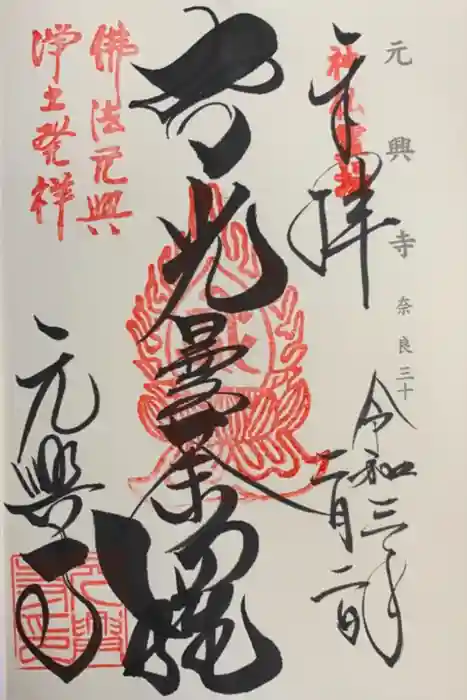 元興寺 奈良三十
神仏霊場
奉拝
令和三年
二月二日
智光曼荼羅
佛法元興
淨土發祥
元興寺